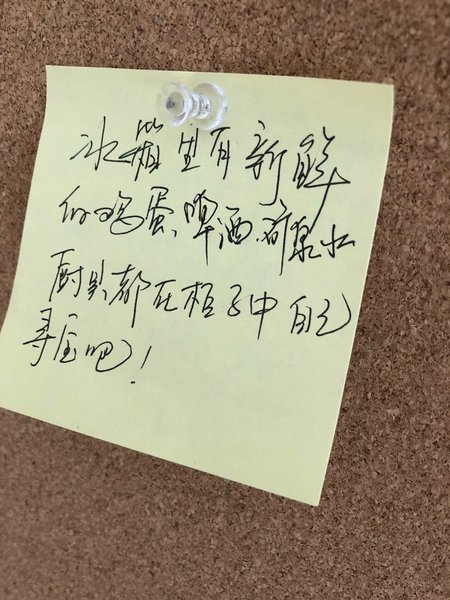 冰箱里有新鲜
的鸡蛋、啤酒、矿泉水
厨具都在柜子中 自己
寻宝吧!